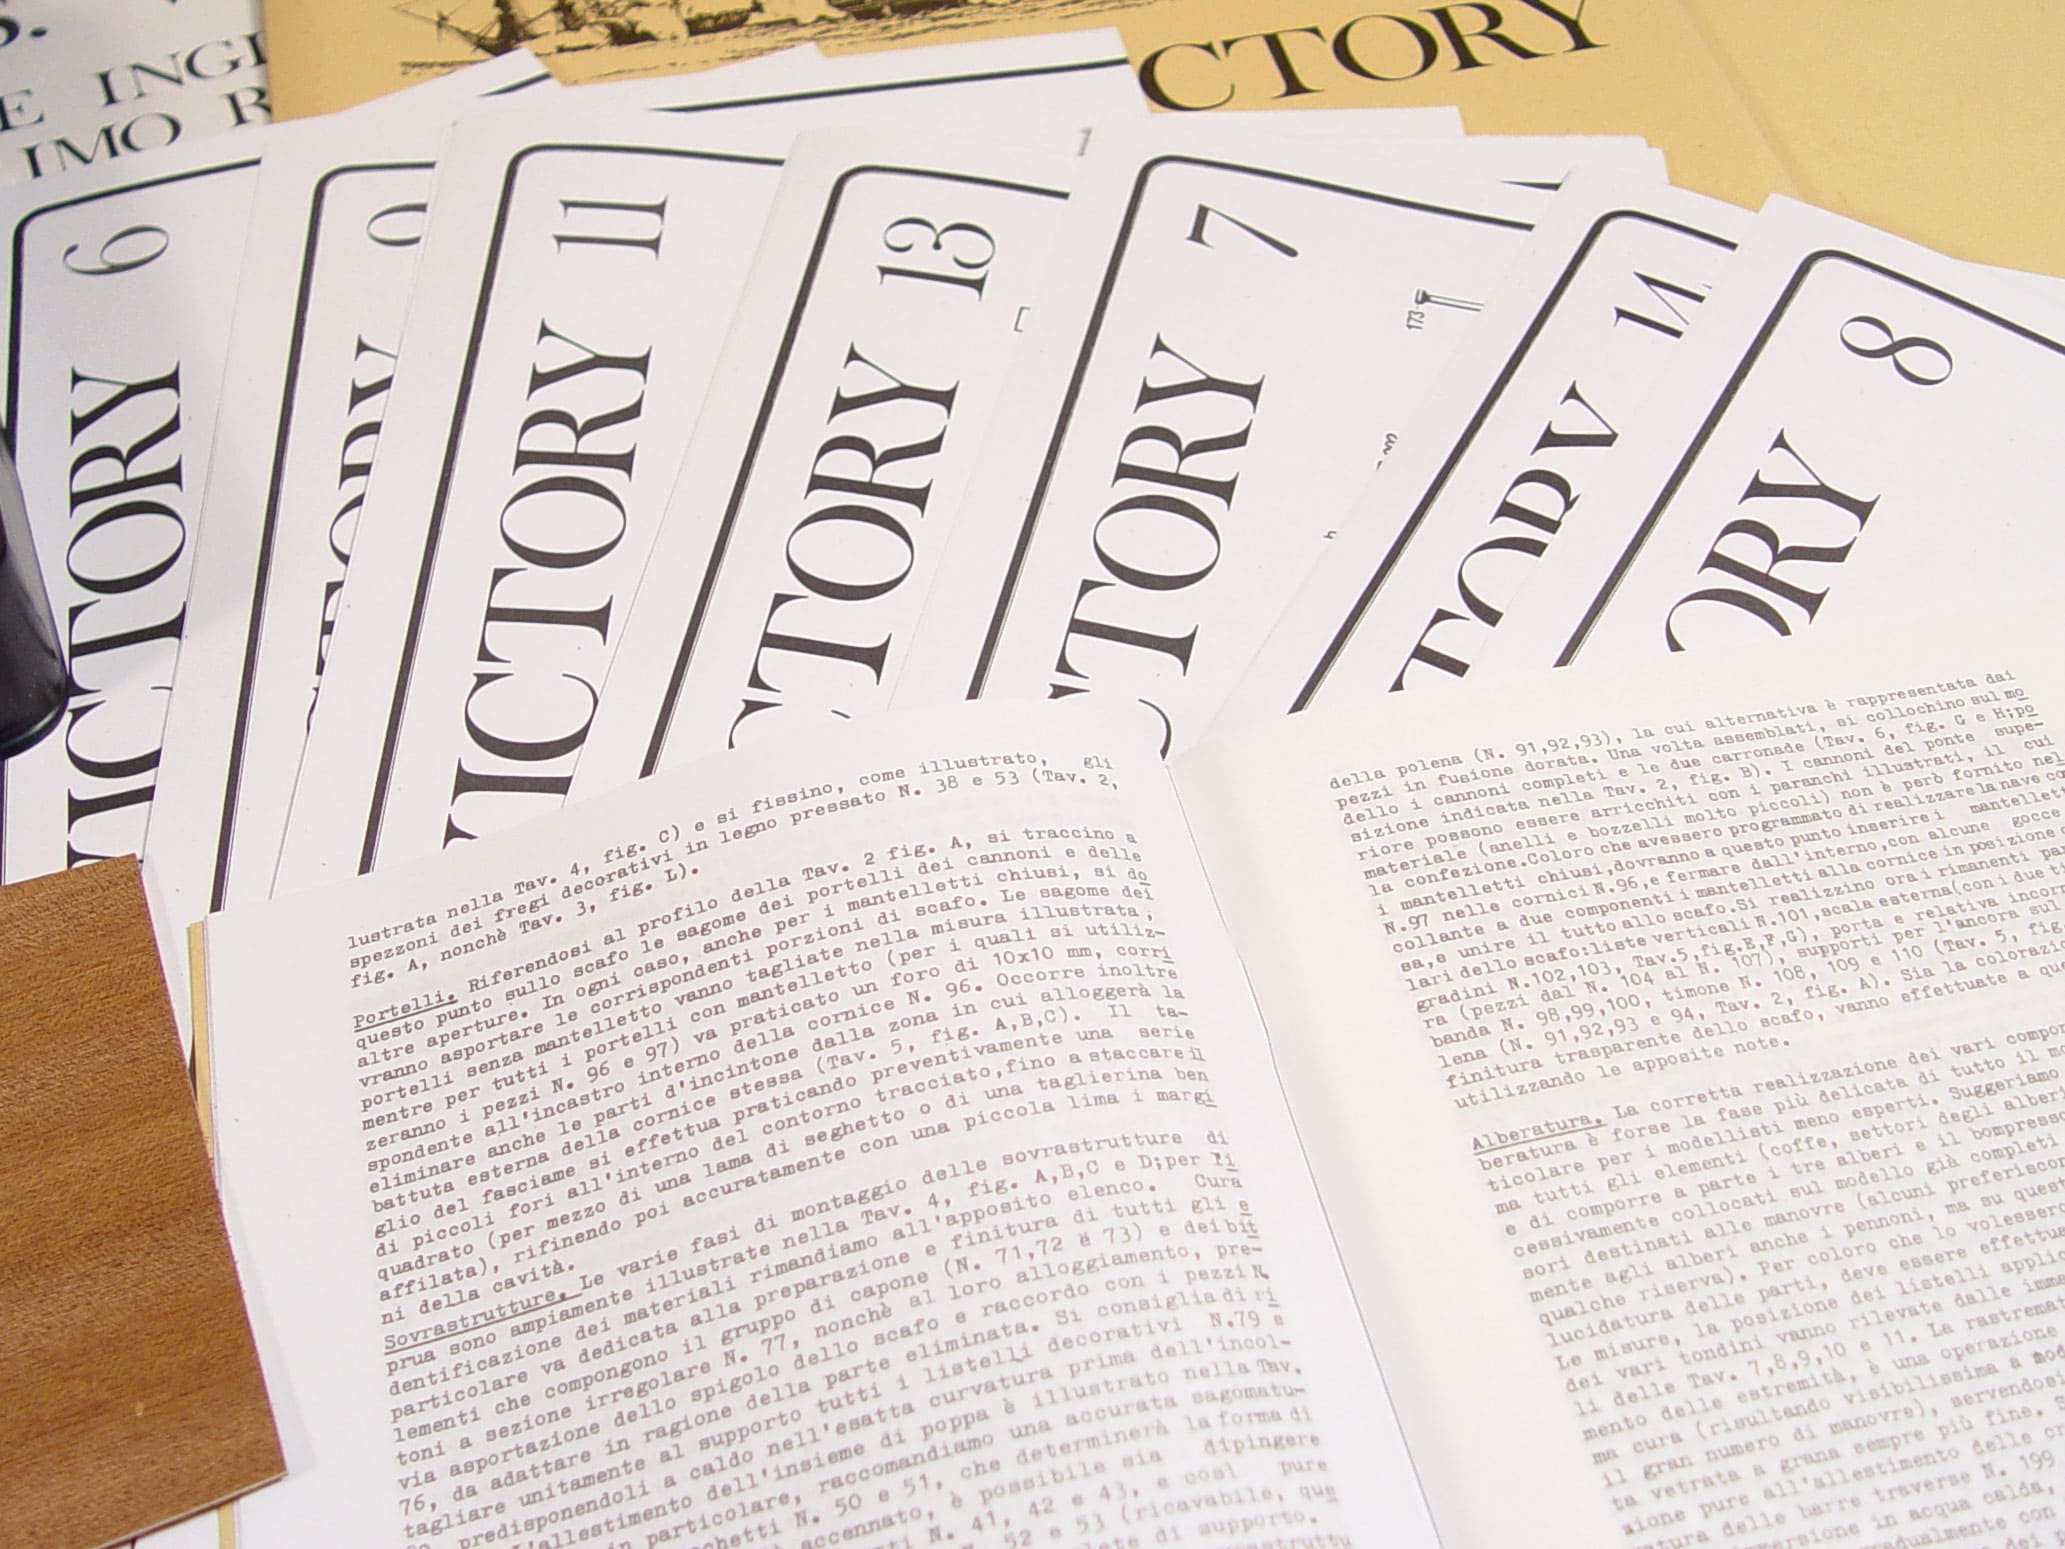 S.
E INGI
IMO R
CTORY
VICTORY 6
CTORY
VICTORY 11
CTORY 13
CTORY 7
173
TORY 14
ORY 8
lustrata nella Tav. 4, fig. C) e si fissino, come illustrato, gli
spezzoni dei fregi decorativi in legno pressato N. 38 e 53 (Tav. 2,
fig. A, nonchè Tav. 3, fig. L).
Portelli. Riferendosi al profilo della Tav. 2 fig. A, si traccino a
questo punto sullo scafo le sagome dei portelli dei cannoni e delle
altre aperture. In ogni caso, anche per i mantelletti chiusi, si do
vranno asportare le corrispondenti porzioni di scafo. Le sagome dei
portelli senza mantelletto vanno tagliate nella misura illustrata,
mentre per tutti i portelli con mantelletto (per i quali si utiliz-
zeranno i pezzi N. 96 e 97) va praticato un foro di 10x10 mm, corri
spondente all'incastro interno della cornice N. 96. Occorre inoltre
eliminare anche le parti d'incintone dalla zona in cui alloggerà la
battuta esterna della cornice stessa (Tav. 5, fig. A,B,C). Il ta-
glio del fasciame si effettua praticando preventivamente una serie
di piccoli fori all'interno del contorno tracciato,fino a staccare il
quadrato (per mezzo di una lama di seghetto o di una taglierina ben
affilata), rifinendo poi accuratamente con una piccola lima i margi
ni della cavità.
Sovrastrutture. Le varie fasi di montaggio delle sovrastrutture di
prua sono ampiamente illustrate nella Tav. 4, fig. A,B,C e D;per l'i
dentificazione dei materiali rimandiamo all'apposito elenco. Cura
particolare va dedicata alla preparazione e finitura di tutti gli e
lementi che compongono il gruppo di capone (N. 71,72 e 73) e dei bit
toni a sezione irregolare N. 77, nonchè al loro alloggiamento, pre-
via asportazione dello spigolo dello scafo e raccordo con i pezzi N.
76, da adattare in ragione della parte eliminata. Si consiglia di ri
tagliare unitamente al supporto tutti i listelli decorativi N.79 e
predisponendoli a caldo nell'esatta curvatura prima dell'incol-
L'allestimento dell'insieme di poppa è illustrato nella Tav.
in particolare, raccomandiamo una accurata sagomatu-
chetti N. 50 e 51, che determinerà la forma di
accennato, è possibile sia dipingere
N. 41, 42 e 43, e così pure
52 e 53 (ricavabile, que
di supporto.
della polena (N. 91,92,93), la cui alternativa è rappresentata dai
pezzi in fusione dorata. Una volta assemblati, si collochino sul mo
dello i cannoni completi e le due carronade (Tav. 6, fig. G e H;po
sizione indicata nella Tav. 2, fig. B). I cannoni del ponte supe-
riore possono essere arricchiti con i paranchi illustrati, il cui
materiale (anelli e bozzelli molto piccoli) non è però fornito nel
la confezione.Coloro che avessero programmato di realizzare la nave co
i mantelletti chiusi,dovranno a questo punto inserire i mantellett
N.97 nelle cornici N.96,e fermare dall'interno,con alcune gocce
collante a due componenti i mantelletti alla cornice in posizione
sa,e unire il tutto allo scafo.Si realizzino ora i rimanenti pa
lari dello scafo:liste verticali N.101,scala esterna(con i due ti
gradini N.102,103, Tav.5,fig.E,F,G), porta e relativa incor
ra (pezzi dal N. 104 al N. 107), supporti per l'ancora sul
banda N. 98,99,100, timone N. 108, 109 e 110 (Tav. 5, fig
lena (N. 91,92,93 e 94, Tav. 2, fig. A). Sia la colorazi
finitura trasparente dello scafo, vanno effettuate a qu
utilizzando le apposite note.
Alberatura. La corretta realizzazione dei vari compon
beratura è forse la fase più delicata di tutto il m
ticolare per i modellisti meno esperti. Suggeriamo
ma tutti gli elementi (coffe, settori degli alberi
e di comporre a parte i tre alberi e il bompress
cessivamente collocati sul modello già completi
sori destinati alle manovre (alcuni preferiscon
mente agli alberi anche i pennoni, ma su quest
qualche riserva). Per coloro che lo volesserc
lucidatura delle parti, deve essere effettua
Le misure, la posizione dei listelli applic
dei vari tondini vanno rilevate dalle imma
li delle Tav. 7,8,9,10 e 11. La rastrema
mento delle estremità, è una operazione
ma cura (risultando visibilissima a mod
il gran numero di manovre), servendosi
ta vetrata a grana sempre più fine. S
zione pure all'allestimento delle cr
ratura delle barre traverse N. 199
mersione in acqua calda,
gradualmente con